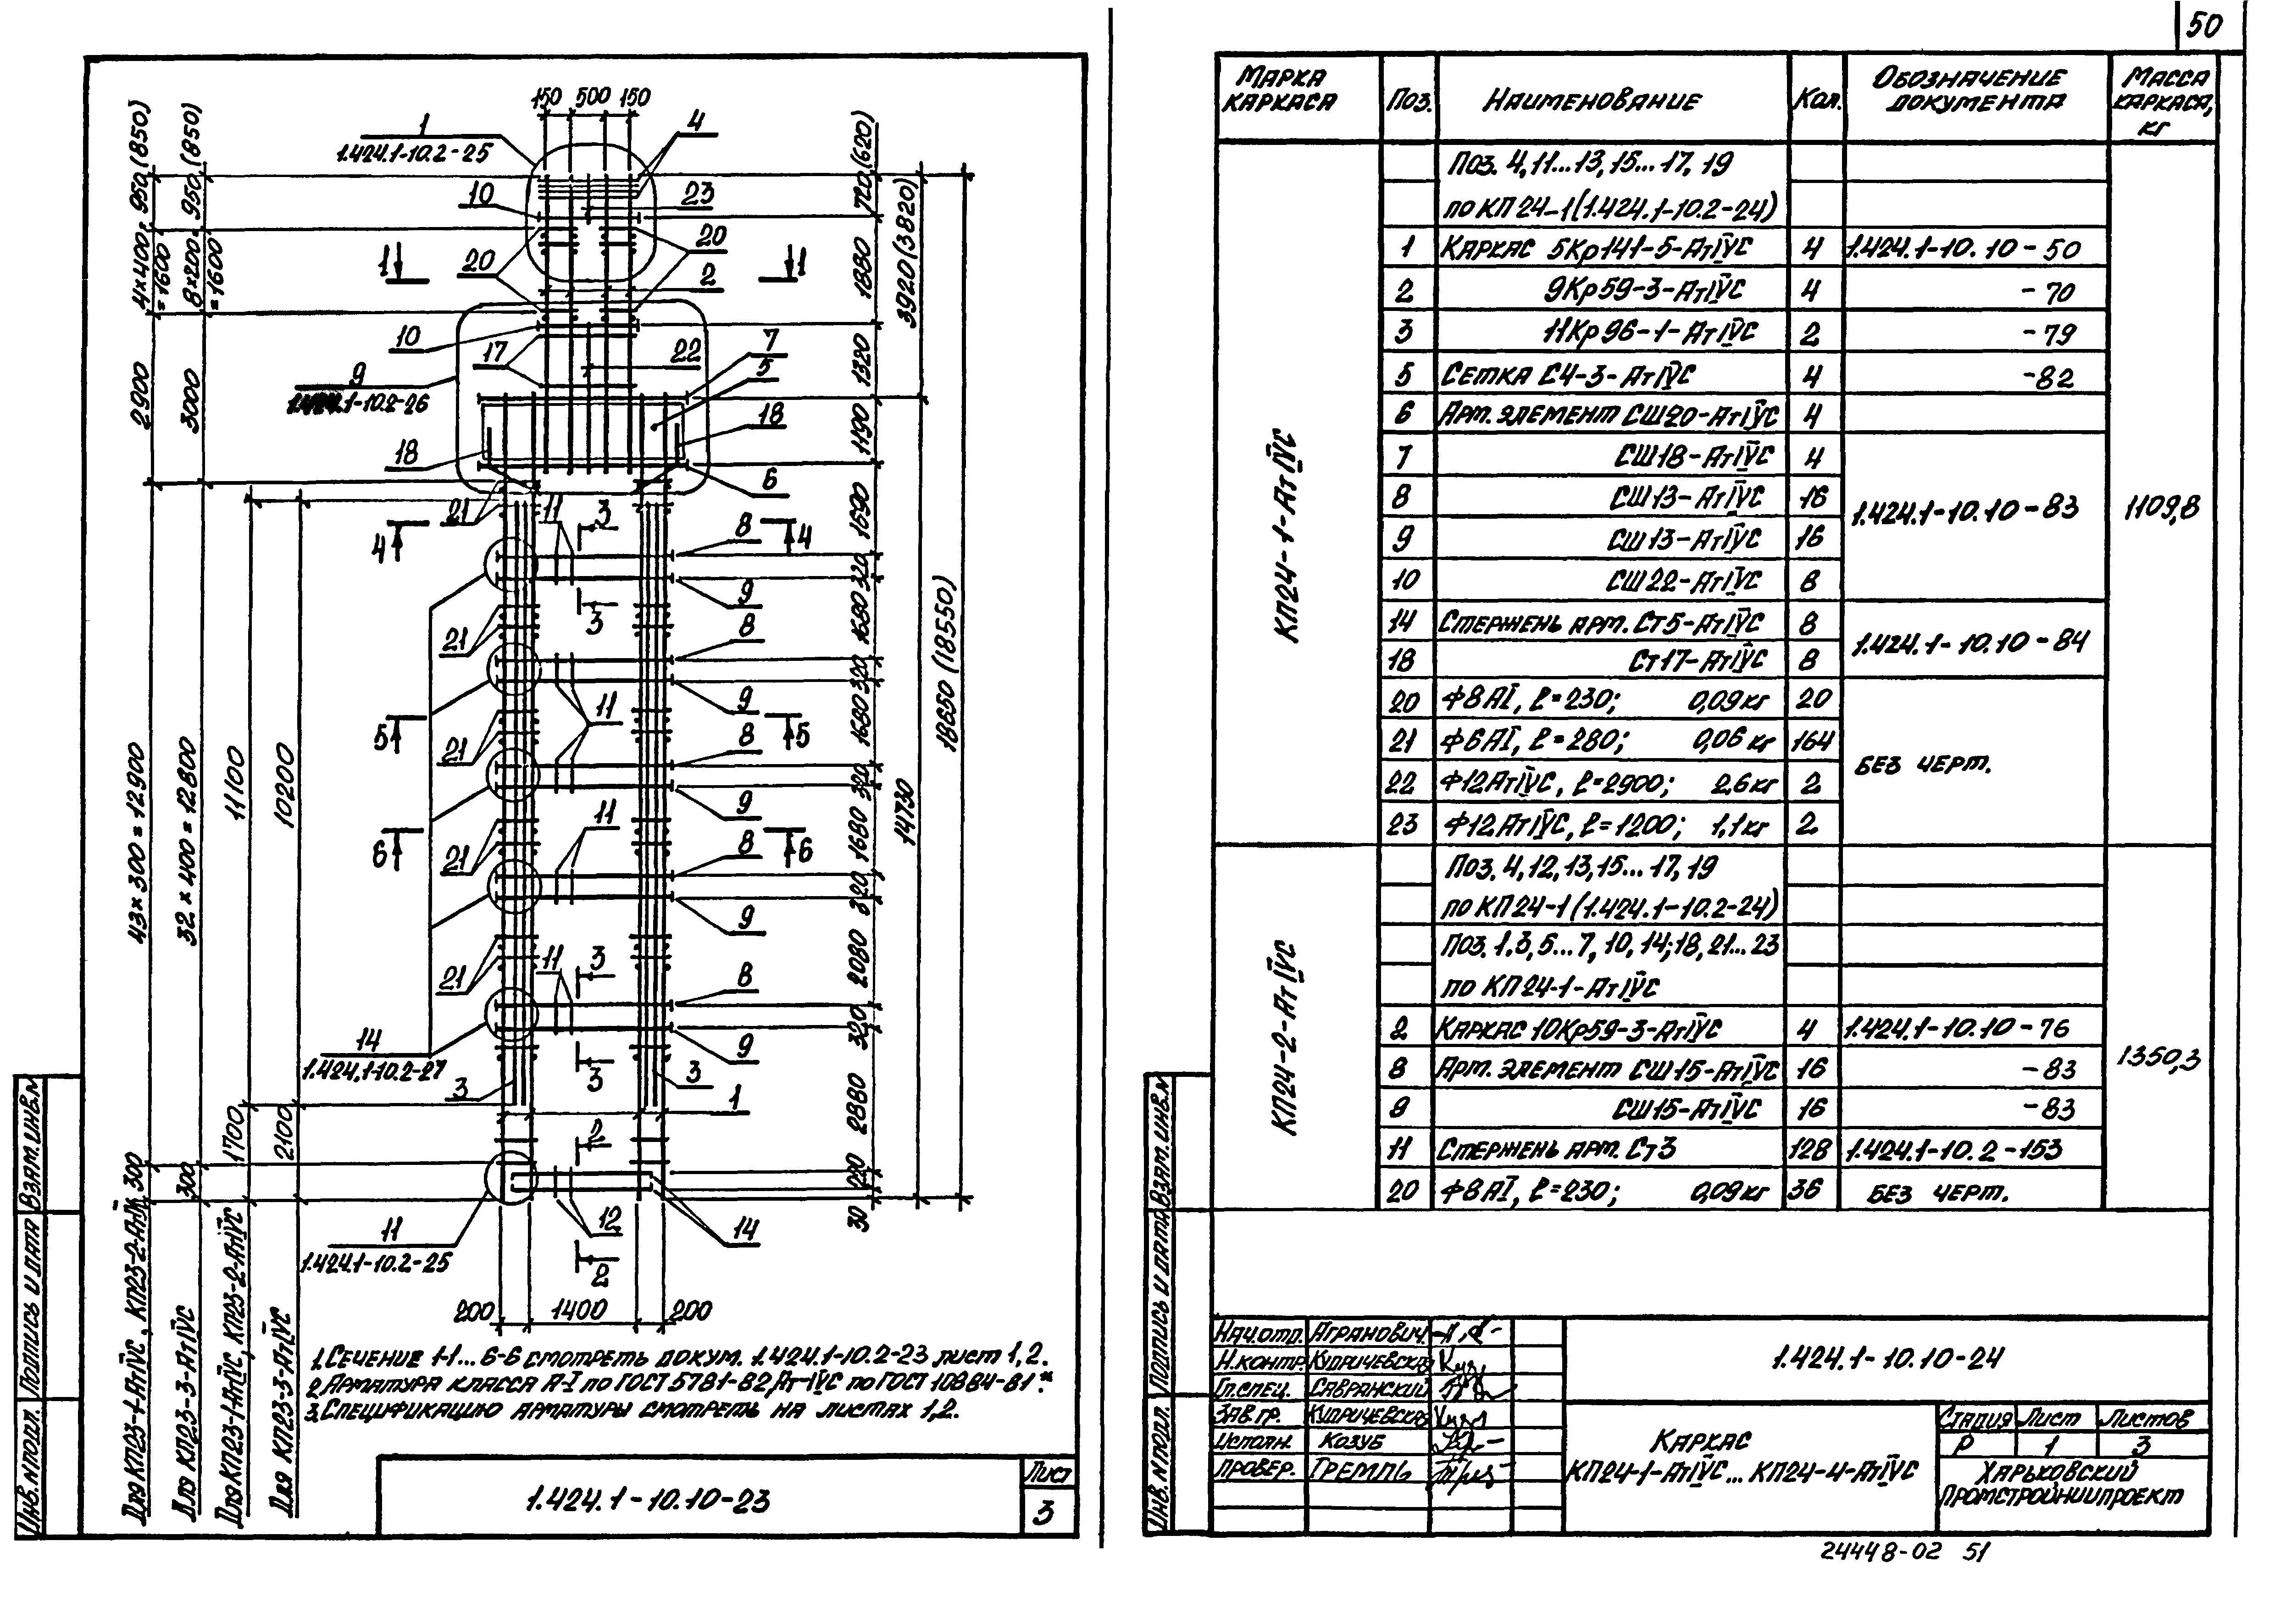 50
150 500 150
1
1.424.1-10.2-25
4
10
23
20
20
1
1
2
10
17
22
7
5
9
1.424.1-10.2-26
18
18
6
21
11
3
4
4
8
9
3
21
8
11
9
5
5
21
8
9
11
6
6
21
8
9
11
3
21
8
9
14
1.424.1-10.2-27
3
3
3
1
2
12
14
11
1.424.1-10.2-25
2
200 1400 200
4×400= =1600
950 (850)
8×200= =1600
950 (850)
2900
3000
43×300=12900
32×400=12800
11100
10200
1700
2100
300
300
720 (620)
1880
1320
1190
1690
320
1680
320
1680
320
1680
320
2080
320
2880
220
30
3920 (3820)
14730
18650 (18550)
Для КП23-1-АтIVС, КП23-2-АтIVС
Для КП23-3-АтIVС
Для КП23-1-АтIVС, КП23-2-АтIVС
Для КП23-3-АтIVС
1. Сечение 1-1... 6-6 смотреть докум. 1.424.1-10.2-23 лист 1,2.
2. Арматура класса А-I по ГОСТ 5781-82, Ат-IVС по ГОСТ 10884-81.*
3. Спецификацию арматуры смотреть на листах 1,2.
1.424.1-10.10-23
Лист
3
Инв.№подл. Подпись и дата Взам.инв.№
Марка каркаса Поз. Наименование Кол. Обозначение документа Масса каркаса, кг
КП24-1-АтIVС
Поз. 4,11...13,15...17,19
по КП 24-1 (1.424.1-10.2-24)
1 Каркас 5Кр141-5-АтIVС 4 1.424.1-10.10-50
2 9Кр59-3-АтIVС 4 -70
3 11Кр96-1-АтIVС 2 -79
5 Сетка С4-3-АтIVС 4 -82
6 Арт. элемент СШ20-АтIVС 4
7 СШ18-АтIVС 4
8 СШ13-АтIVС 16 1.424.1-10.10-83 1109,8
9 СШ13-АтIVС 16
10 СШ22-АтIVС 8
14 Стержень арм. Ст5-АтIVС 8 1.424.1-10.10-84
18 Ст17-АтIVС 8
20 Ф8АI, ℓ=230; 0,09кг 20
21 Ф6АI, ℓ=280; 0,06кг 164 Без черт.
22 Ф12АтIVС, ℓ=2900; 2,6кг 2
23 Ф12АтIVС, ℓ=1200; 1,1кг 2
КП24-2-АтIVС
Поз. 4,12,13,15...17,19
по КП 24-1 (1.424.1-10.2-24)
Поз. 1,3,5...7,10,14;18,21...23
по КП 24-1-АтIVС
2 Каркас 10Кр59-3-АтIVС 4 1.424.1-10.10-76
8 Арт. элемент СШ15-АтIVС 16 -83 1350,3
9 СШ15-АтIVС 16 -83
11 Стержень арм. Ст3 128 1.424.1-10.2-153
20 Ф8АI, ℓ=230; 0,09кг 36 Без черт.
Нач.отд. Агранович
Н.контр. Кудричевская
Гл.спец. Савранский
Зав.гр. Кудричевская
Исполн. Козуб
Провер. Гремпь
1.424.1-10.10-24
Каркас
КП24-1-АтIVС... КП24-4-АтIVС
Стадия Лист Листов
Р 1 3
Харьковский
Промстройниипроект
Инв.№подл. Подпись и дата Взам.инв.№
24448-02 51